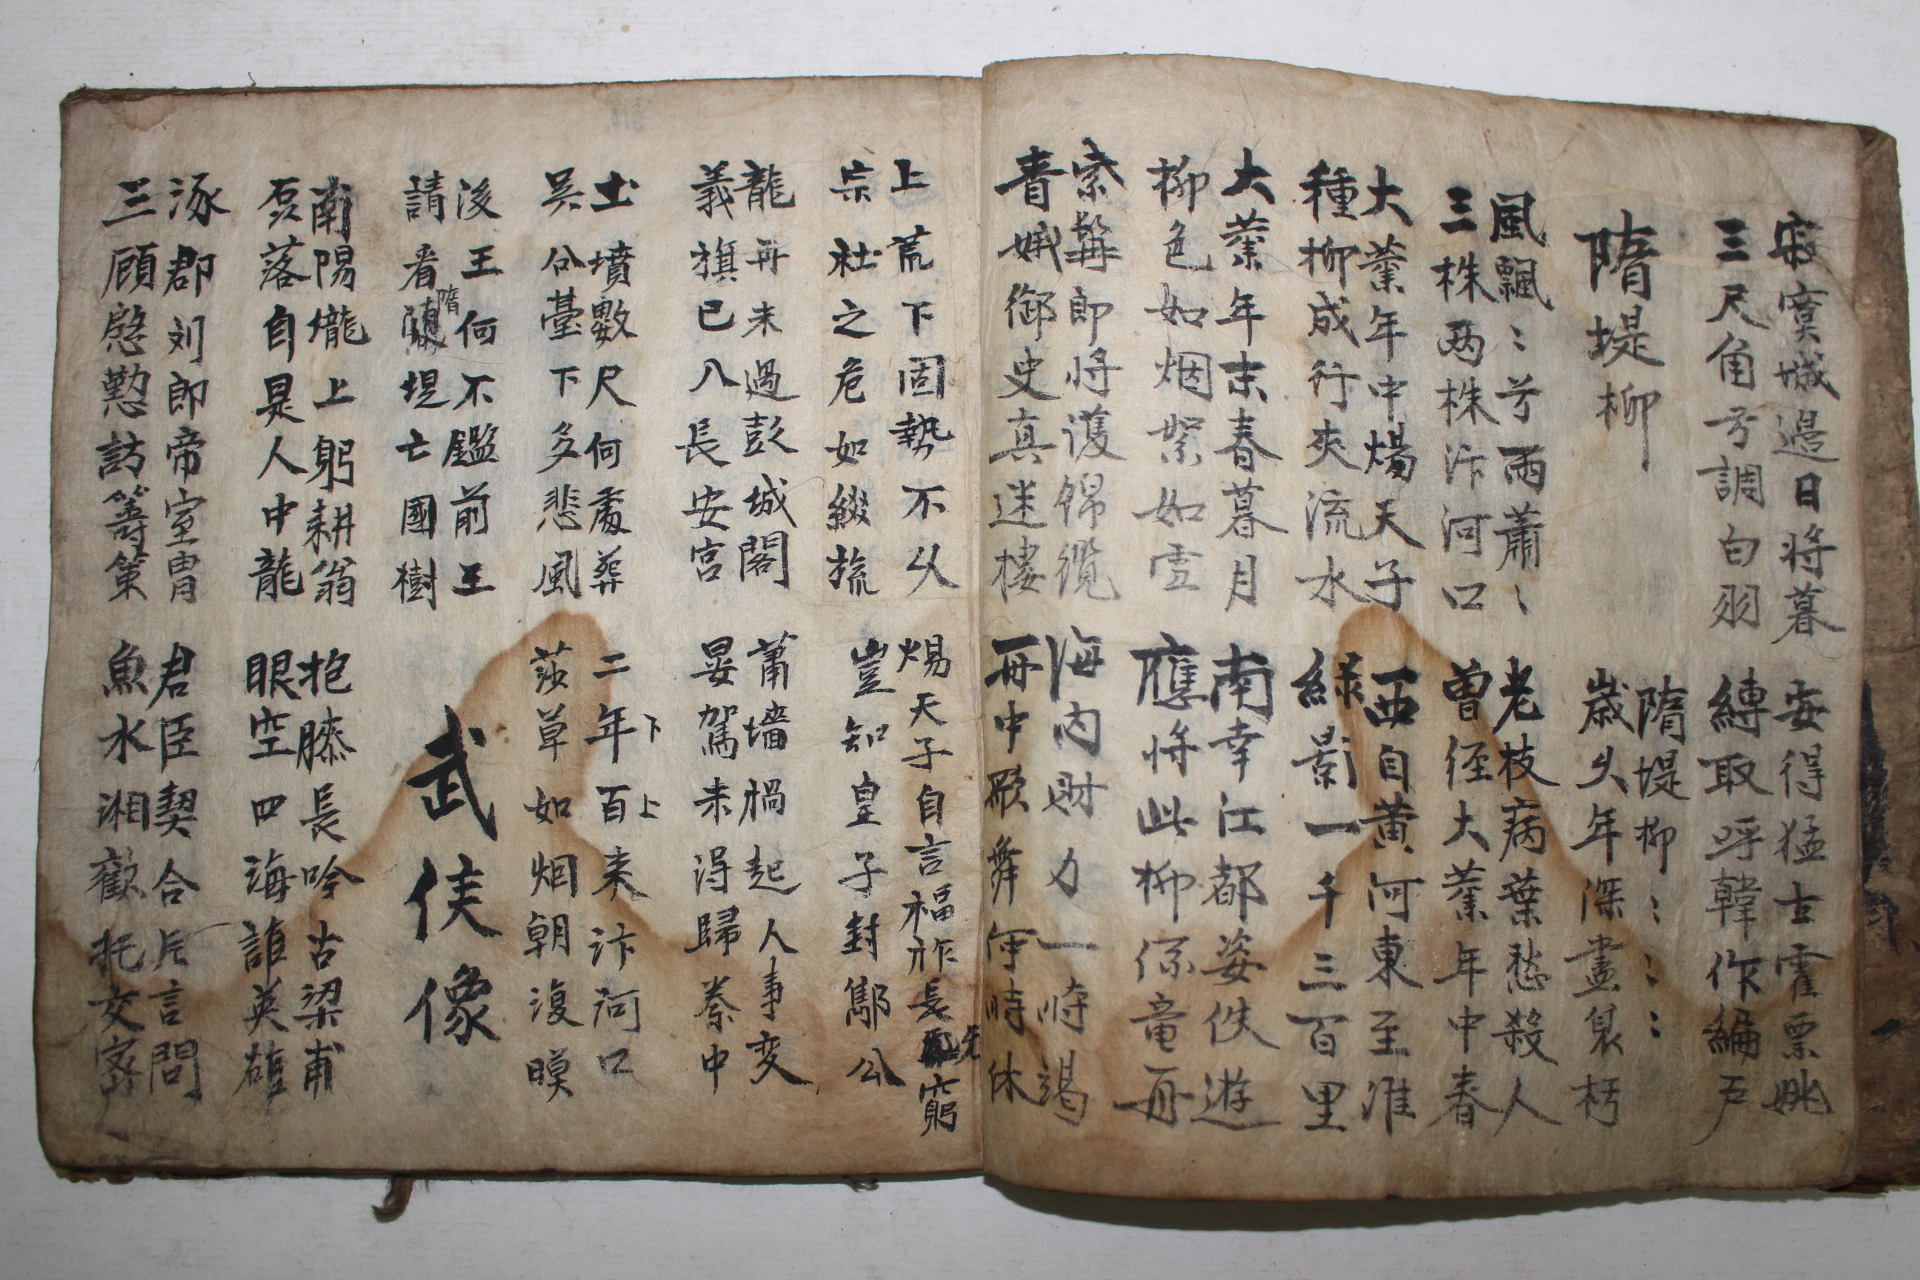 寂寞城邉日將暮
三尺角弓調白羽
安得猛士霍票姚
縛取呼韓作編戶
隋堤柳
隋堤柳〻〻〻
歲久年深盡衰朽
風飄〻兮雨蕭〻
三株两株汴河口
老枝病葉愁殺人
曽径大業年中春
大業年中煬天子
種柳成行夾流水
西自黃河東至淮
綠影一千三百里
大業年末春暮月
柳色如烟絮如雪
南幸江都姿佚遊
應將此柳係竜舟
索髯郎將護锦纜
青娥御史真迷樓
海內財力一時竭
舟中歌舞何時休
上荒下固勢不久
宗社之危如綴旒
煬天子自言福祚長无窮
豈知皇子封酅公
龍舟未過彭城閣
義旗已入長安宮
蕭墻禍起人事変
晏駕未得歸秦中
土墳數尺何處葬
吳公臺下多悲風
二年下百上来汴河口
莎草如烟朝復暝
後王何不鑑前王
請看隋堤亡國樹
武侯像
南陽壠上躬耕翁
磊落自是人中龍
抱膝長吟古梁甫
眼空四海誰英雄
涿郡刘郎帝室胄
三顧慇懃訪籌策
君臣契合片言間
魚水湘歡托文密